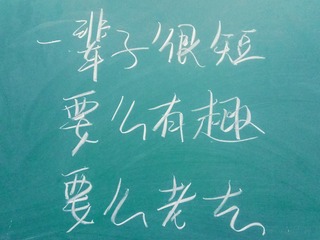 一辈子很短
要么有趣
要么老去